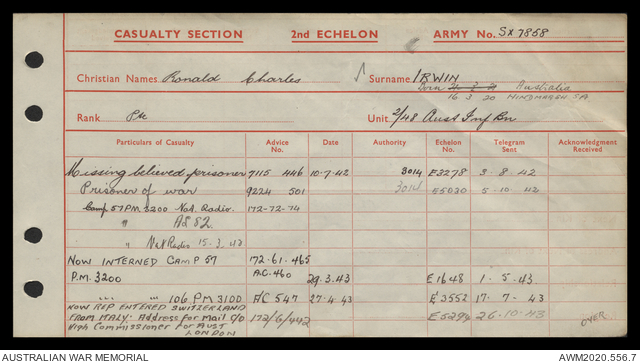 CASUALTY SECTION 2nd ECHELON ARMY No. SX7858
Christian Names Ronald Charles Surname IRWIN
Born Australia
16 3 20 HINDMARSH SA
Rank Pte Unit 2/48 Aust Inf Bn
Particulars of Casualty Advice No. Date Authority Echelon No. Telegram Sent Acknowledgment Received
Missing believed prisoner 7115 446 10-7-42 3014 E3278 3-8-42
Prisoner of war 9224 501 3014 E5030 5-10-42
Camp 57 PM 3200 Nat. Radio. 172-72-74
" AS 52
" Nat Radio 15.3.43
NOW INTERNED CAMP 57 172-61-465
P.M. 3200 A.C. 460 29.3.43 E1648 1-5-43
" " 106 PM 3100 A/C 547 27-4-43 E3552 17-7-43
NOW REP ENTERED SWITZERLAND
FROM ITALY. Address for mail C/o 172/6/442 E5294 26-10-43 OVER
High Commissioner for Aust
LONDON
AUSTRALIAN WAR MEMORIAL AWM2020.556.7